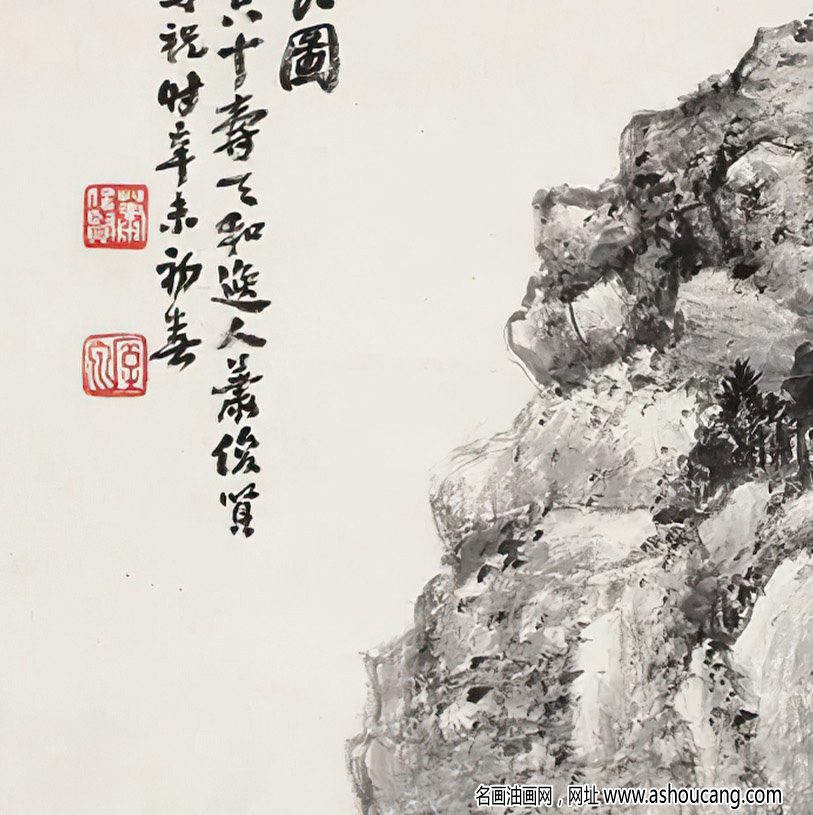 圖
十壽天和逸人蕭俊賢
祝時辛未初春
蕭俊賢
厔泉
名画油画网，网址 www.ashoucang.com